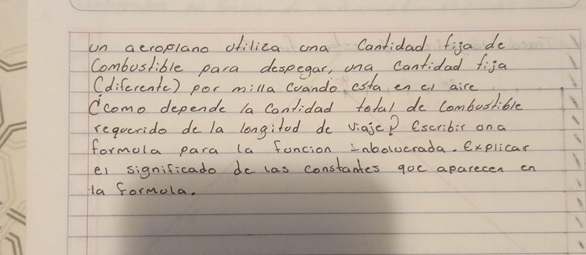 un aeroplano utiliza una Cantidad fija de
Combustible para despegar, una cantidad fija
(diferente) por milla Cuando esta en el aire.
¿como depende la Cantidad total de Combustible
requerido de la longitud de viaje? Escribir una
formula para la funcion inbolucrada. Explicar
el significado de las constantes que aparecen en
la formula.